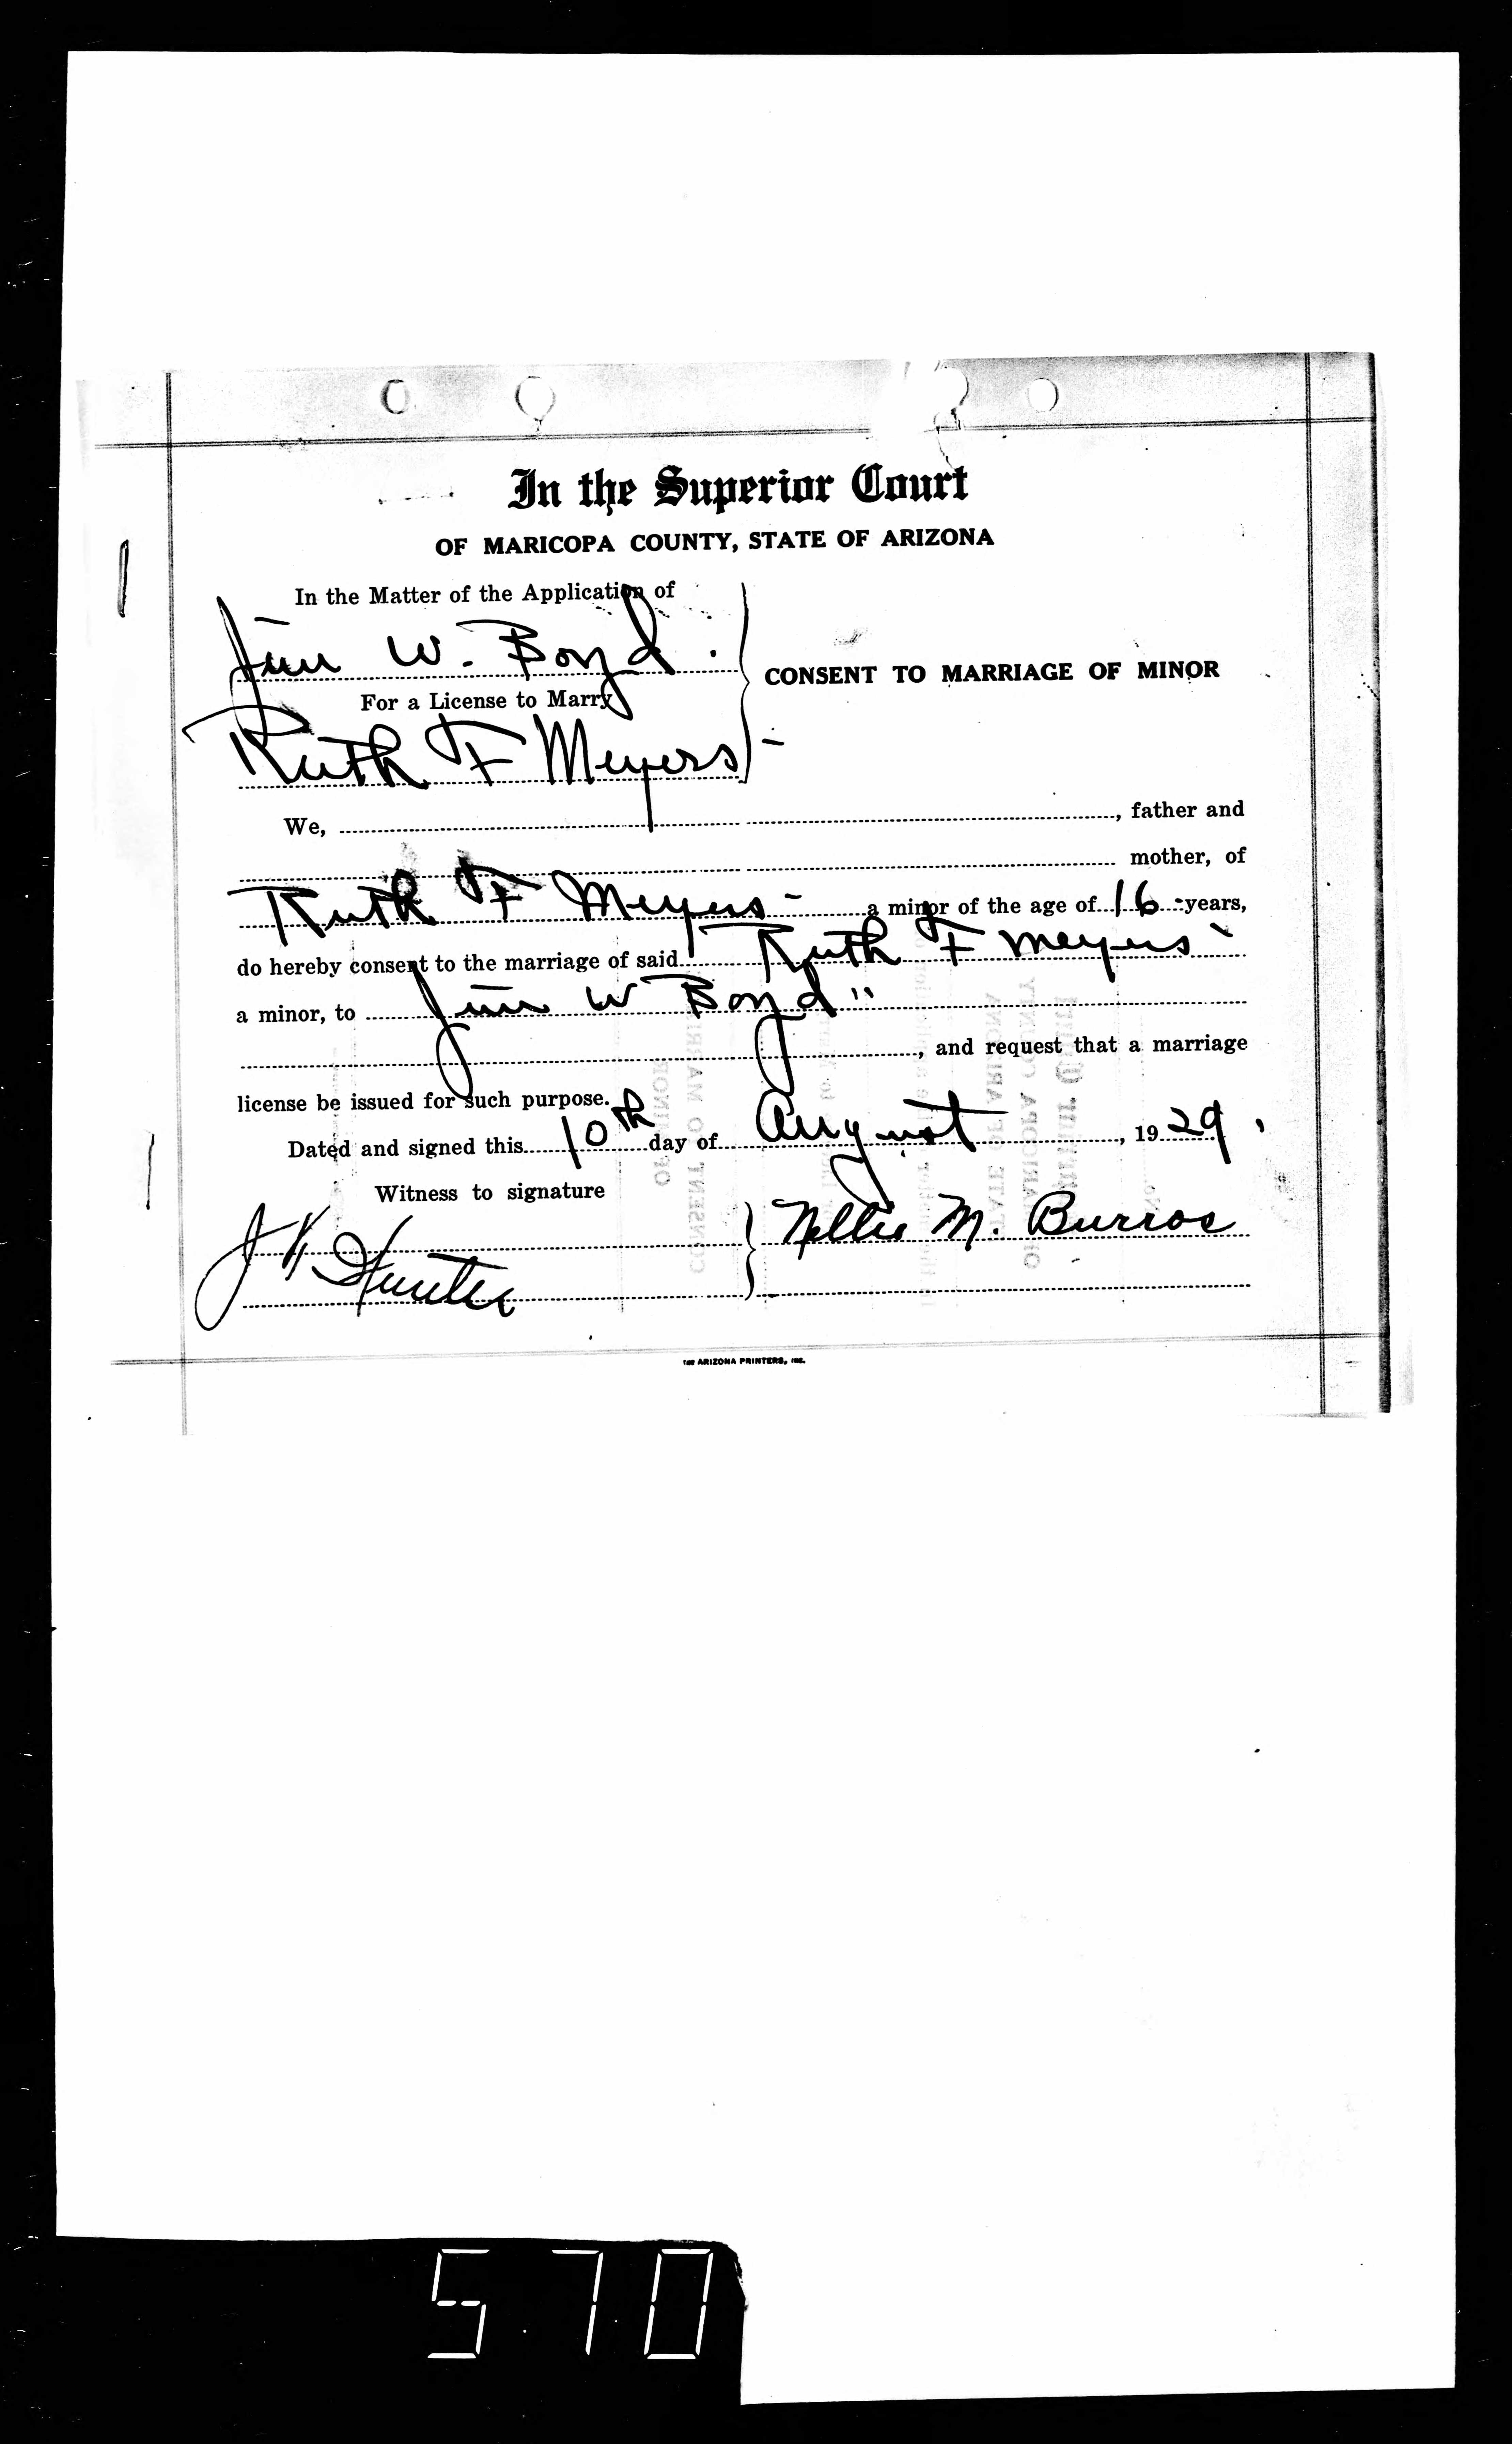 In the Superior Court
OF MARICOPA COUNTY, STATE OF ARIZONA
In the Matter of the Application of
Jim W. Boyd.
For a License to Marry
CONSENT TO MARRIAGE OF MINOR
Ruth F Meyers -
We, , father and
mother, of
Ruth F Meyers - a minor of the age of 16 - years,
do hereby consent to the marriage of said Ruth F Meyers -
a minor, to Jim W Boyd "
, and request that a marriage
license be issued for such purpose.
Dated and signed this 10th day of August , 1929.
Witness to signature
Nellie M. Burros
Hunter
THE ARIZONA PRINTERS, INC.
570